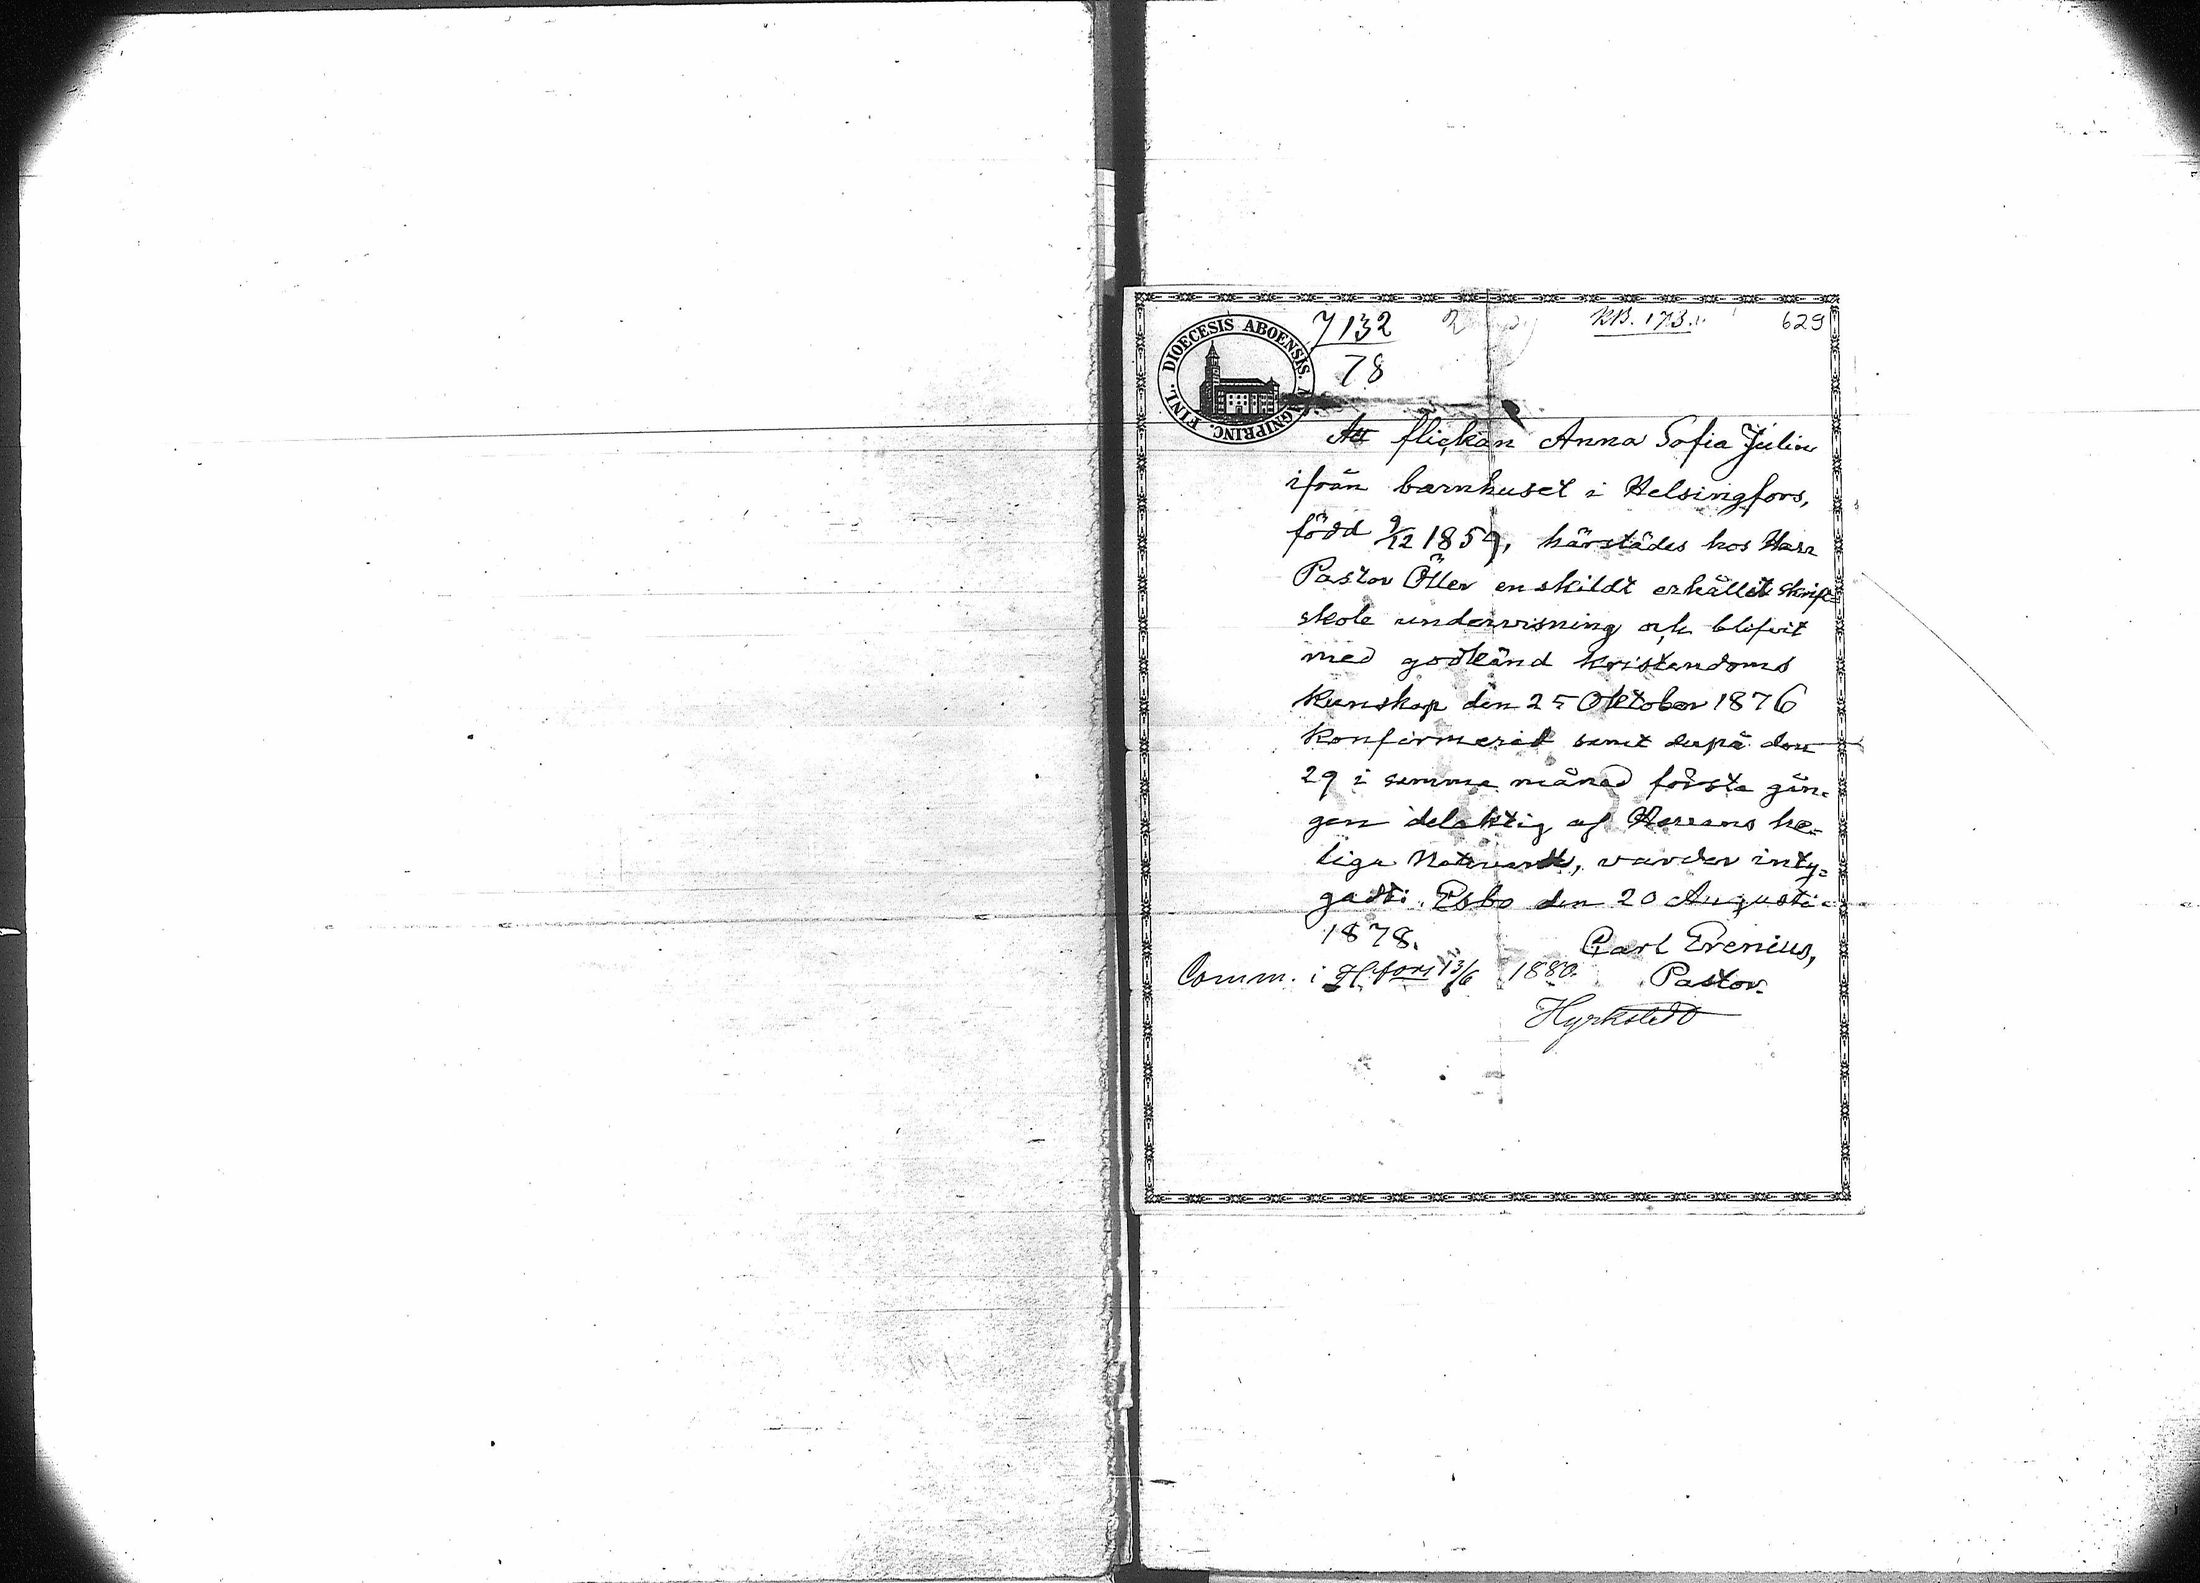 DIOECESIS ABOENSIS. MAGNIPRINC. FINL.
7132
78
KB. 173.
629
Att flickan Anna Sofia Julin
ifrån barnhuset i Helsingfors,
född 9/12 1859, härstädes hos Herr
Pastor Öller enskildt erhållit skrift=
skole undervisning och blifvit
med godkänd kristendoms
kunskap den 25 Oktober 1876
konfirmerad samt derpå den
29 i samma månad första gån-
gen delaktig af Herrans he-
liga Nattvard, varder inty=
gadt: Esbo den 20 Augusti
1878.
Carl Erenius,
Pastor.
Comm. i H:fors 13/6 1880.
Hyrkstedt